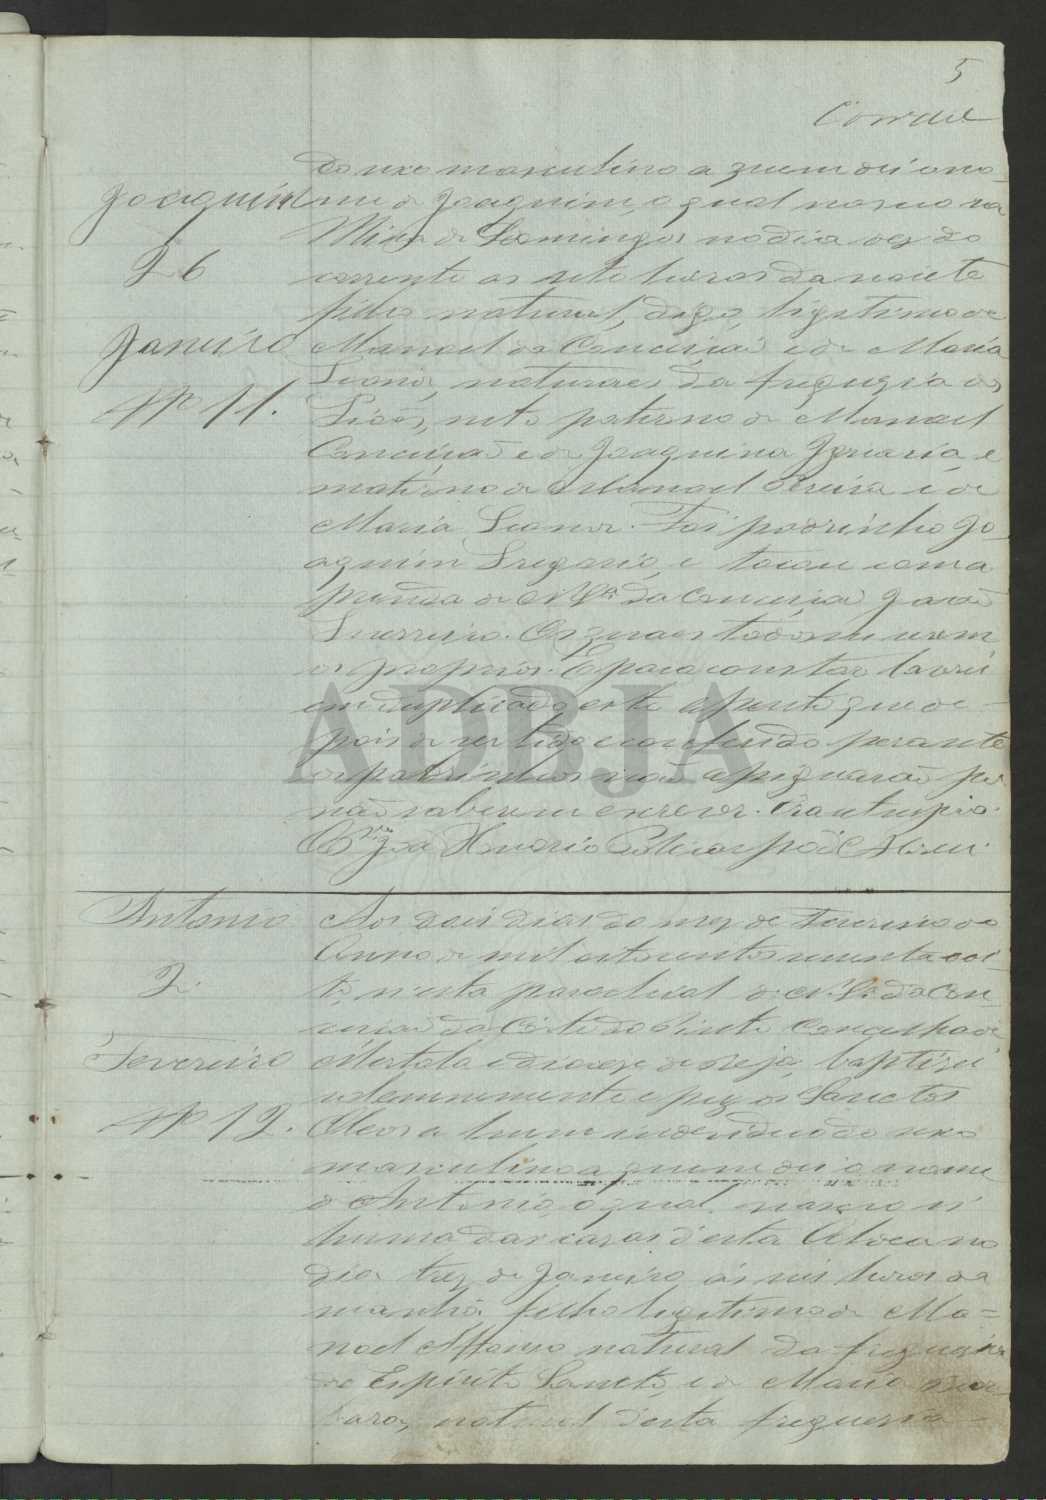 5
Joaquim
26
Janeiro
Nº 11.
do sexo masculino a quem dei o no-
me de Joaquim, o qual nasceu na
Mina de S. Domingos no dia dez do
corrente as sete horas da noite
filho natural, digo, legitimo de
Manoel da Conceição e de Maria
naturaes da freguezia de
neto paterno de Manoel
Conceição e de Joaquina Januaria, e
materno de Manoel Pereira e de
Maria Leonor. Foi padrinho Jo-
aquim Gregorio, e tocou com a
prenda de N. Srª da Conceição João
Guerreiro. Os quaes todos sei serem
os proprios. E para constar lavrei
em duplicado este assento que de-
pois de ser lido e conferido perante
os padrinhos não assignarão por
não saberem escrever. Era ut supra.
Antonio
2
Fevereiro
Nº 12.
Aos dois dias do mez de Fevereiro do
Anno de mil oitocentos e oi-
to, n'esta parochial de N. Srª da Con-
ceição da Côrte do Pinto Concelho de
Mertola e diocese de Beja, baptizei
solemnemente e puz os Sanctos
Oleos a hum individuo do sexo
masculino a quem dei o nome
de Antonio, o qual nasceu n'
huma das casas d'esta Aldea no
dia trez de Janeiro ás seis horas da
manhã, filho legitimo de Ma-
noel Affonso natural da freguezia
do Espirito Sancto, e de Maria Bar-
bara, natural d'esta freguezia